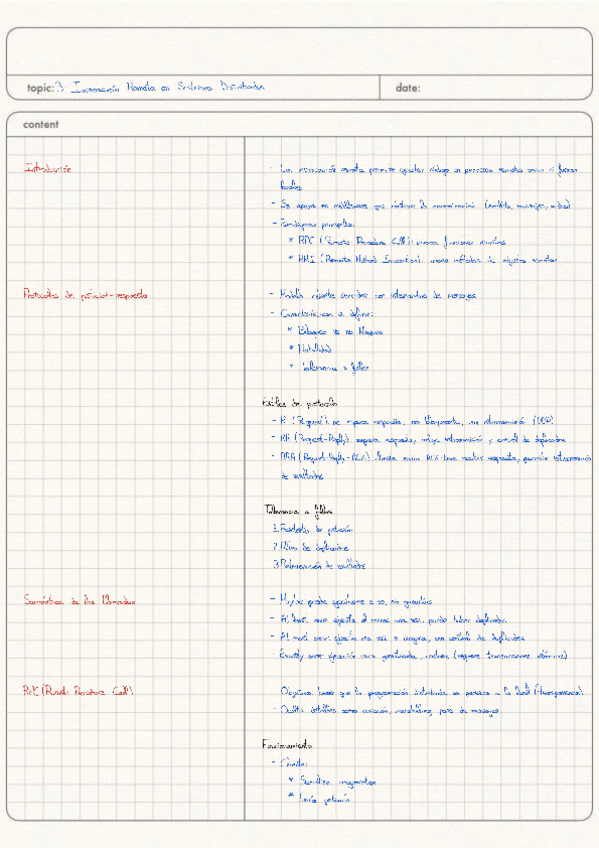 topic: 3- Invocación Remota en Sistemas Distribuidos
date:
content
Introducción
- La invocación remota permite ejecutar código en procesos remotos como si fueran
locales
- Se apoya en middleware que
- Paradigmas principales:
* RPC (Remote Procedure Call): invoca funciones remotas
* RMI (Remote Method Invocation): invoca métodos de objetos remotos
Protocolos de petición-respuesta
- Modelo cliente-servidor con intercambio de mensajes
- Características a definir:
* Bloqueo vs no bloqueo
* Fiabilidad
* Tolerancia a fallos
Estilos de protocolo
- R (Request): no espera respuesta, no bloqueante, sin retransmisión (UDP)
- RR (Request-Reply): espera respuesta, incluye retransmisión y control de duplicados
- RRA (Request-Reply-ACK): cliente envía ACK tras recibir respuesta, permite
de resultados
Tolerancia a fallos
1. de petición
2. Filtro de duplicados
3. Retransmisión de resultados
Semántica de las llamadas
- Maybe: puede ejecutarse o no, sin garantías
- At least once: ejecuta al menos una vez, puede haber duplicados
- At most once: ejecuta una vez o ninguna, con control de duplicados
- Exactly once: ejecución única garantizada, (requiere transacciones atómicas)
RPC (Remote Procedure Call)
Objetivo: hacer que la programación distribuida se parezca a la local (transparencia)
- Oculta detalles como conexión, marshalling, paso de mensajes
Funcionamiento
- Cliente:
* Serializa argumentos
* Envía petición